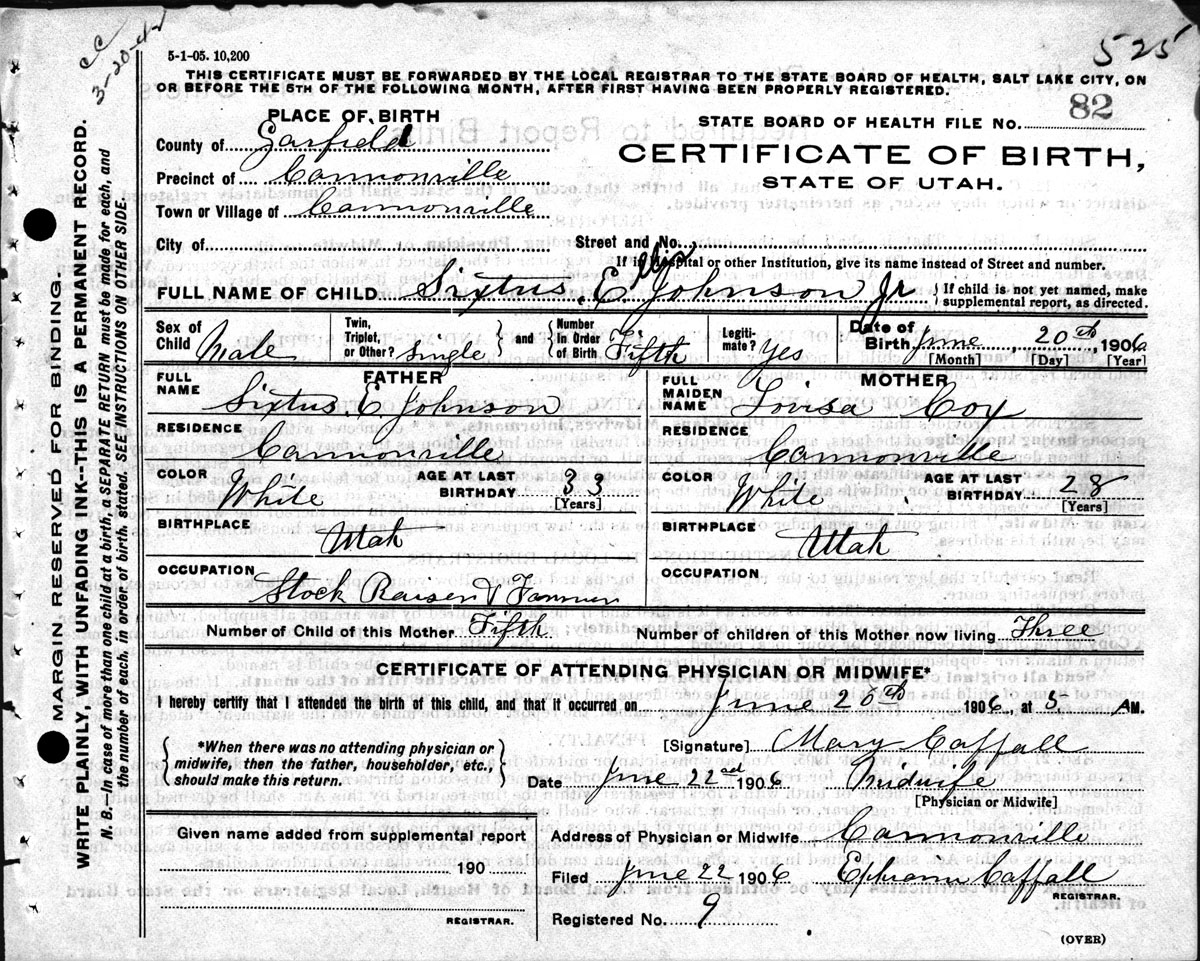 5-1-05. 10,200
525
CC
3-20-42
THIS CERTIFICATE MUST BE FORWARDED BY THE LOCAL REGISTRAR TO THE STATE BOARD OF HEALTH, SALT LAKE CITY, ON
OR BEFORE THE 5TH OF THE FOLLOWING MONTH, AFTER FIRST HAVING BEEN PROPERLY REGISTERED.
PLACE OF BIRTH
STATE BOARD OF HEALTH FILE No. 82
County of Garfield
CERTIFICATE OF BIRTH,
Precinct of Cannonville
STATE OF UTAH.
Town or Village of Cannonville
City of
Street and No.
If in Hospital or other Institution, give its name instead of Street and number.
FULL NAME OF CHILD Sixtus E. Johnson Jr
llis
{ If child is not yet named, make
supplemental report, as directed.
Sex of Child Male
Twin, Triplet, or Other? Single } and { Number in Order of Birth Fifth
Legiti-mate? Yes
Date of Birth June 20th, 1906
[Month] [Day] [Year]
FATHER
FULL NAME Sixtus E. Johnson
RESIDENCE Cannonville
COLOR White
AGE AT LAST BIRTHDAY 33
[Years]
BIRTHPLACE Utah
OCCUPATION Stock Raiser & Farmer
MOTHER
FULL MAIDEN NAME Lovisa Cox
RESIDENCE Cannonville
COLOR White
AGE AT LAST BIRTHDAY 28
[Years]
BIRTHPLACE Utah
OCCUPATION
Number of Child of this Mother Fifth
Number of children of this Mother now living Three
CERTIFICATE OF ATTENDING PHYSICIAN OR MIDWIFE*
I hereby certify that I attended the birth of this child, and that it occurred on June 20th 1906, at 5 AM.
{ *When there was no attending physician or
midwife, then the father, householder, etc.,
should make this return. }
[Signature] Mary Caffall
Date June 22nd 1906 Midwife
[Physician or Midwife]
Given name added from supplemental report
190
REGISTRAR.
Address of Physician or Midwife Cannonville
Filed June 22 1906 Ephraim Caffall
REGISTRAR.
Registered No. 9
(OVER)
MARGIN RESERVED FOR BINDING.
WRITE PLAINLY, WITH UNFADING INK--THIS IS A PERMANENT RECORD.
N. B.--In case of more than one child at a birth, a SEPARATE RETURN must be made for each, and
the number of each, in order of birth, stated. SEE INSTRUCTIONS ON OTHER SIDE.